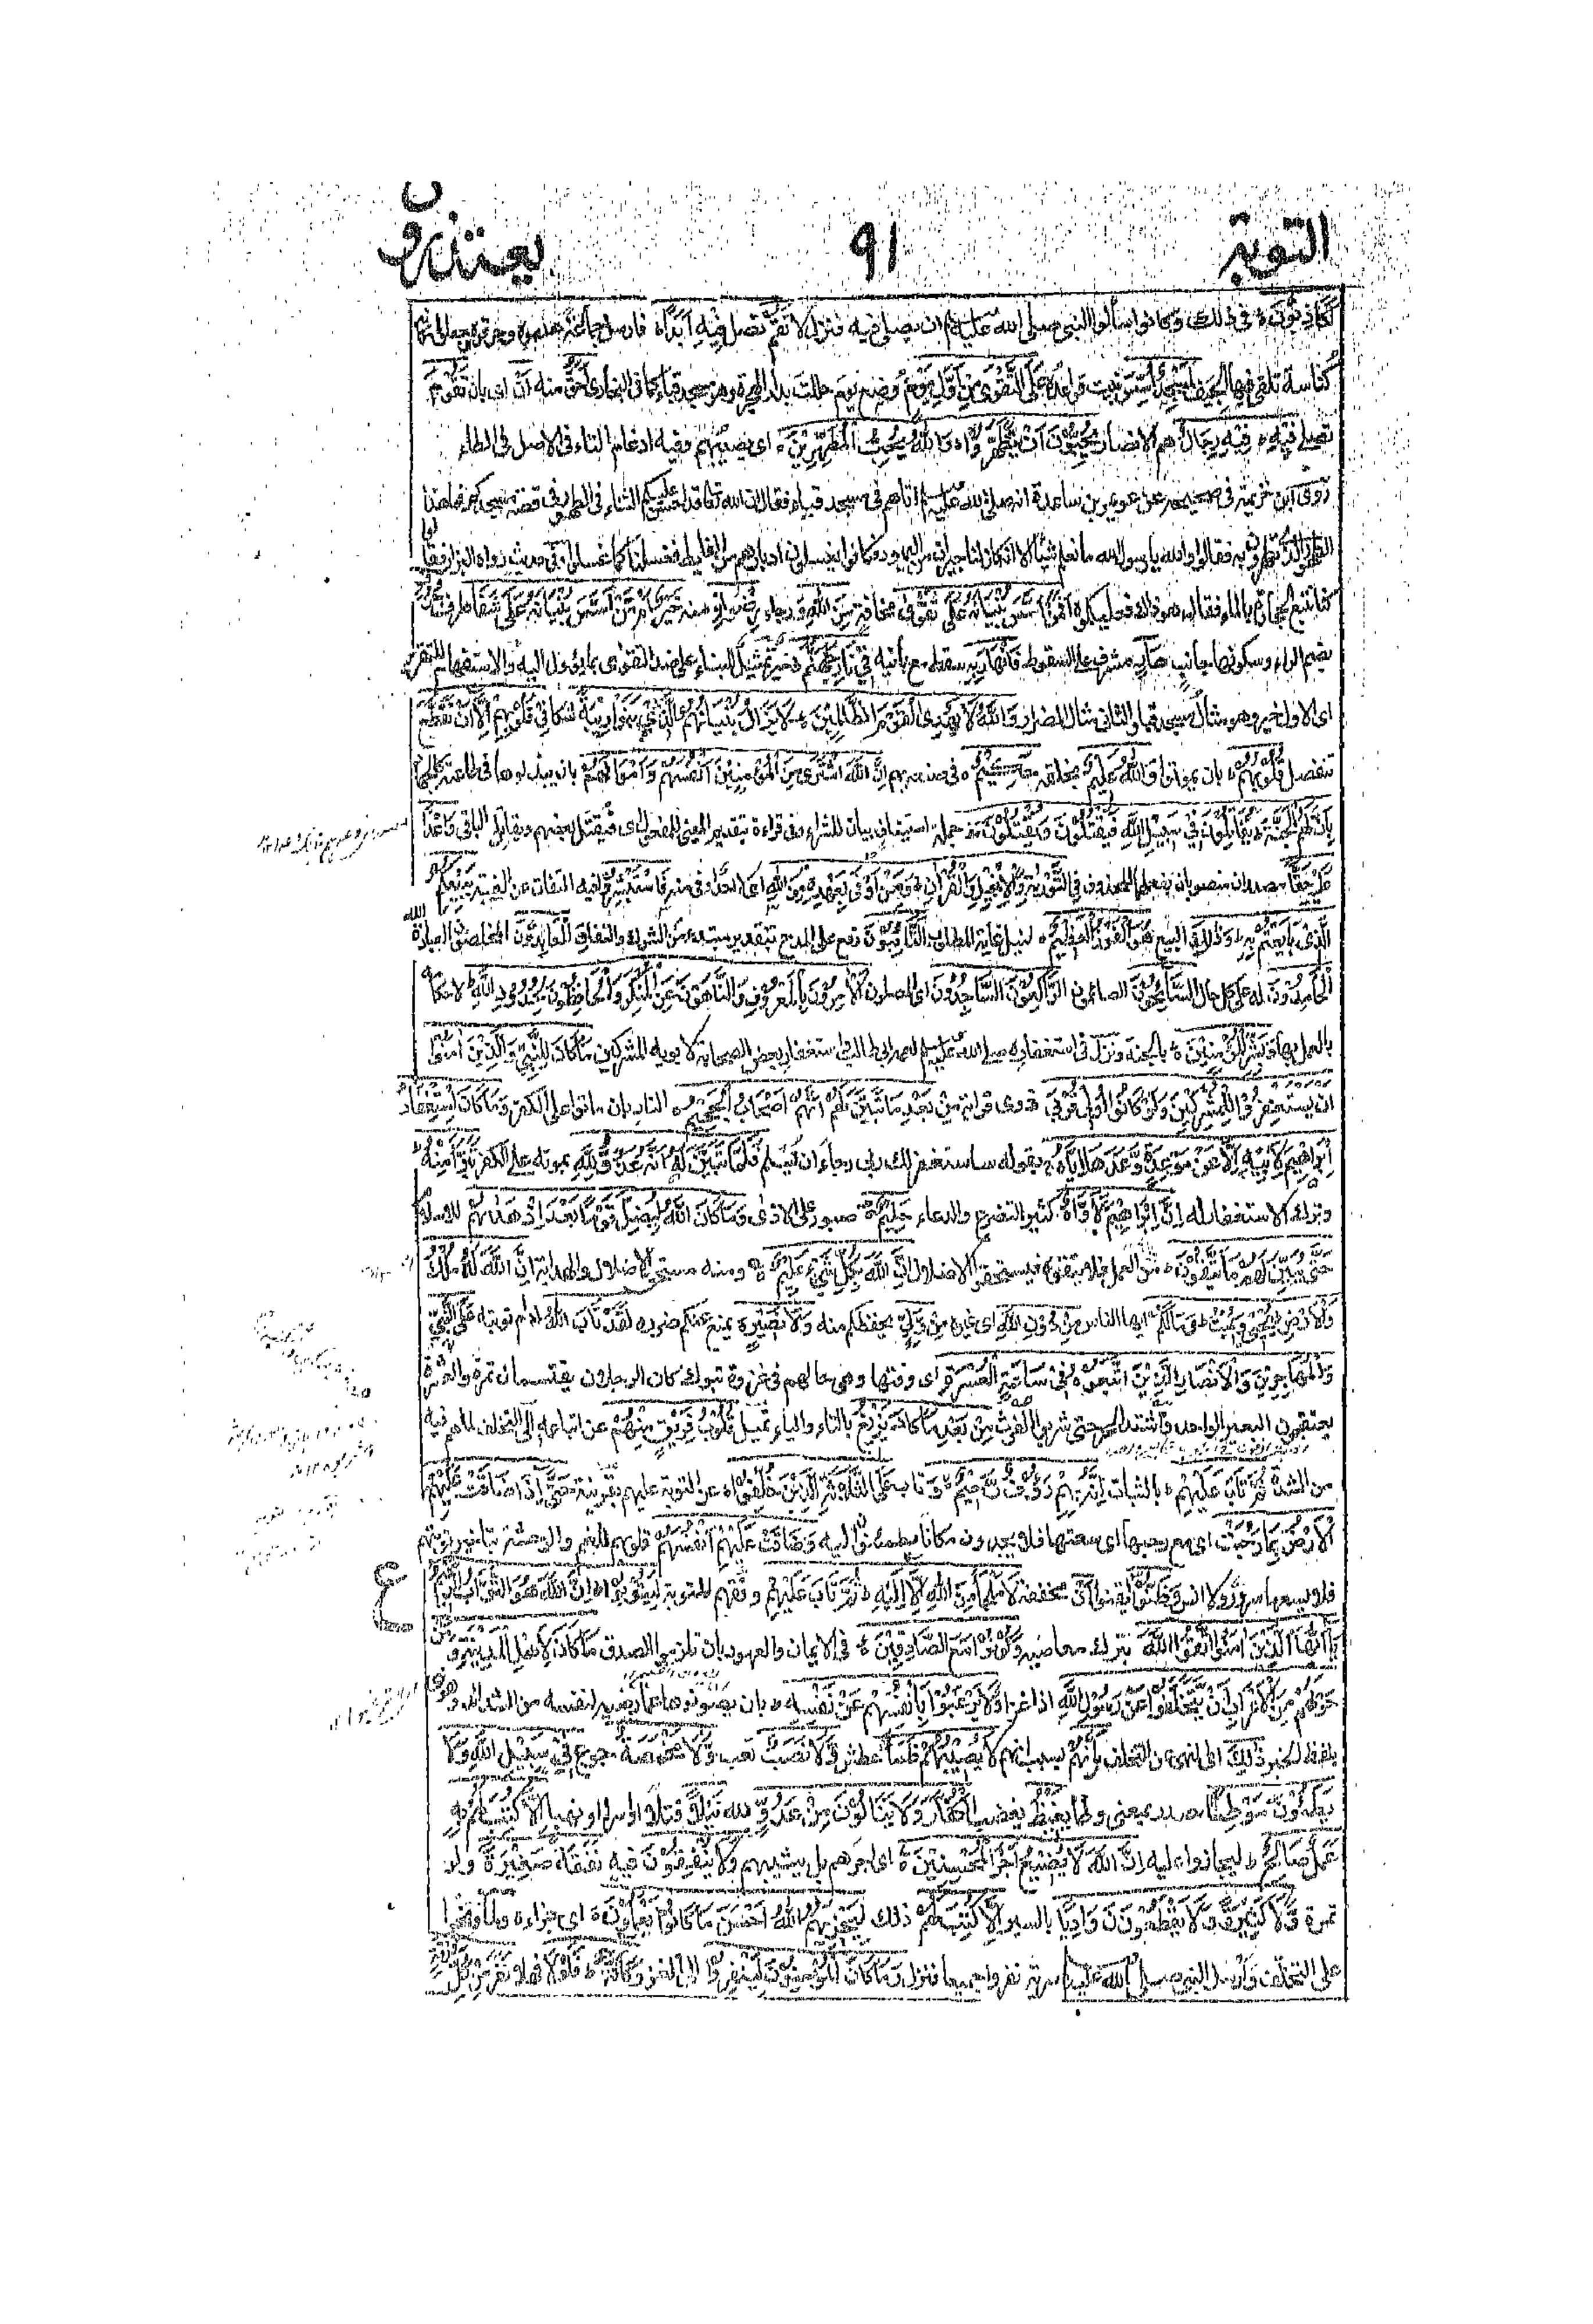 التوبة ٩١ يعتذرون
لَكَاذِبُوْنَ فى ذلك وكانوا سألوا النبى صلى الله عليه وسلم ان يصلى فيه فنزل لَا تَقُمْ تصل فِيْهِ اَبَدًا فارسل جماعة هدموه وحرقوه وجعلوا مكانه
كناسة تلقى فيها الجيف لَمَسْجِدٌ اُسِّسَ بنيت قواعده عَلَى التَّقْوٰى مِنْ اَوَّلِ يَوْمٍ وضع يوم حللت بدار الهجرة وهو مسجد قباء كما فى البخارى اَحَقُّ منه اَنْ اى بان تَقُوْمَ
تصلى فِيْهِ فِيْهِ رِجَالٌ هم الانصار يُحِبُّوْنَ اَنْ يَّتَطَهَّرُوْا وَاللّٰهُ يُحِبُّ الْمُطَّهِّرِيْنَ اى يثيبهم وفيه ادغام التاء فى الاصل فى الطاء
روى ابن خزيمة فى صحيحه عن عويمر بن ساعدة انه صلى الله عليه وسلم اتاهم فى مسجد قباء فقال ان الله تعالى قد احسن عليكم الثناء فى الطهور فى قصة مسجدكم فما هذا
الطهور الذى تطهرون به فقالوا والله يا رسول الله ما نعلم شيئا الا انه كان لنا جيران من اليهود وكانوا يغسلون ادبارهم من الغايط فغسلنا كما غسلوا وفى حديث رواه البزار فقالوا
كنا نتبع الحجارة بالماء فقال هو ذاك فعليكموه اَفَمَنْ اَسَّسَ بُنْيَانَهُ عَلٰى تَقْوٰى مخافة مِنَ اللّٰهِ وَ رجاء رِضْوَانٍ منه خَيْرٌ اَمْ مَّنْ اَسَّسَ بُنْيَانَهُ عَلٰى شَفَا طرف جُرُفٍ
بضم الراء وسكونها جانب هَارٍ مشرف على السقوط فَانْهَارَ بِهِ سقط مع بانيه فِيْ نَارِ جَهَنَّمَ خير تمثيل للبناء على ضد التقوى بما يؤول اليه والاستفهام للتقرير
اى الاول خير وهو مثال مسجد قبا والثانى مثال الضرار وَاللّٰهُ لَا يَهْدِى الْقَوْمَ الظّٰلِمِيْنَ لَا يَزَالُ بُنْيَانُهُمُ الَّذِيْ بَنَوْا رِيْبَةً شكا فِيْ قُلُوْبِهِمْ اِلَّا اَنْ تَقَطَّعَ
تنفصل قُلُوْبُهُمْ بان يموتوا وَاللّٰهُ عَلِيْمٌ بخلقه حَكِيْمٌ فى صنعه بهم اِنَّ اللّٰهَ اشْتَرٰى مِنَ الْمُؤْمِنِيْنَ اَنْفُسَهُمْ وَاَمْوَالَهُمْ بان يبذلوها فى طاعته كالجهاد
بِاَنَّ لَهُمُ الْجَنَّةَ يُقَاتِلُوْنَ فِيْ سَبِيْلِ اللّٰهِ فَيَقْتُلُوْنَ وَيُقْتَلُوْنَ جملة استيناف بيان للشراء وفى قراءة بتقديم المبنى للمفعول اى فيقتل بعضهم ويقاتل الباقى وَعْدًا
عَلَيْهِ حَقًّا مصدران منصوبان بفعلهما المحذوف فِى التَّوْرٰىةِ وَالْاِنْجِيْلِ وَالْقُرْاٰنِ وَمَنْ اَوْفٰى بِعَهْدِهِ مِنَ اللّٰهِ اى لا احد اوفى منه فَاسْتَبْشِرُوْا فيه التفات عن الغيبة بِبَيْعِكُمُ
الَّذِىْ بَايَعْتُمْ بِهِ وَذٰلِكَ البيع هُوَ الْفَوْزُ الْعَظِيْمُ لنيل غاية المطلوب اَلتَّائِبُوْنَ رفع على المدح بتقدير مبتدء من الشرك والنفاق الْعَابِدُوْنَ المخلصون العبادة لله
الْحَامِدُوْنَ له على كل حال السَّائِحُوْنَ الصائمون الرَّاكِعُوْنَ السَّاجِدُوْنَ اى المصلون الْاٰمِرُوْنَ بِالْمَعْرُوْفِ وَالنَّاهُوْنَ عَنِ الْمُنْكَرِ وَالْحَافِظُوْنَ لِحُدُوْدِ اللّٰهِ لاحكامه
بالعمل بها وَبَشِّرِ الْمُؤْمِنِيْنَ بالجنة ونزل فى استغفاره صلى الله عليه وسلم لعمه ابى طالب واستغفار بعض الصحابة لابويه المشركين مَا كَانَ لِلنَّبِيِّ وَالَّذِيْنَ اٰمَنُوْا
اَنْ يَّسْتَغْفِرُوْا لِلْمُشْرِكِيْنَ وَلَوْ كَانُوْا اُولِىْ قُرْبٰى ذوى قرابة مِنْ بَعْدِ مَا تَبَيَّنَ لَهُمْ اَنَّهُمْ اَصْحَابُ الْجَحِيْمِ النار بان ماتوا على الكفر وَمَا كَانَ اسْتِغْفَارُ
اِبْرَاهِيْمَ لِاَبِيْهِ اِلَّا عَنْ مَّوْعِدَةٍ وَّعَدَهَا اِيَّاهُ بقوله ساستغفر لك ربى رجاء ان يسلم فَلَمَّا تَبَيَّنَ لَهُ اَنَّهُ عَدُوٌّ لِلّٰهِ بموته على الكفر تَبَرَّاَ مِنْهُ
وترك الاستغفار له اِنَّ اِبْرَاهِيْمَ لَاَوَّاهٌ كثير التضرع والدعاء حَلِيْمٌ صبور على الاذى وَمَا كَانَ اللّٰهُ لِيُضِلَّ قَوْمًا بَعْدَ اِذْ هَدٰىهُمْ للاسلام
حَتّٰى يُبَيِّنَ لَهُمْ مَا يَتَّقُوْنَ من العمل فلا يتقوه فيستحقوا الاضلال اِنَّ اللّٰهَ بِكُلِّ شَيْءٍ عَلِيْمٌ ومنه مستحق الاضلال والهداية اِنَّ اللّٰهَ لَهُ مُلْكُ
وَالْاَرْضِ يُحْيِىْ وَيُمِيْتُ وَمَا لَكُمْ ايها الناس مِنْ دُوْنِ اللّٰهِ اى غيره مِنْ وَّلِيٍّ يحفظكم منه وَلَا نَصِيْرٍ يمنع عنكم ضرره لَقَدْ تَابَ اللّٰهُ ادام توبته عَلَى النَّبِيِّ
وَالْمُهَاجِرِيْنَ وَالْاَنْصَارِ الَّذِيْنَ اتَّبَعُوْهُ فِيْ سَاعَةِ الْعُسْرَةِ اى وقتها وهى حالهم فى غزوة تبوك كان الرجلان يقتسمان تمرة والعشرة
يعتقبون البعير الواحد واشتد الحر حتى شربوا الفرث مِنْ بَعْدِ مَا كَادَ يَزِيْغُ بالتاء والياء تميل قُلُوْبُ فَرِيْقٍ مِّنْهُمْ عن اتباعه الى التخلف لما هم فيه
من الشدة ثُمَّ تَابَ عَلَيْهِمْ بالثبات اِنَّهُ بِهِمْ رَءُوْفٌ رَّحِيْمٌ وَ تاب عَلَى الثَّلٰثَةِ الَّذِيْنَ خُلِّفُوْا عن التوبة عليهم بقرينة حَتّٰى اِذَا ضَاقَتْ عَلَيْهِمُ
الْاَرْضُ بِمَا رَحُبَتْ اى مع رحبها اى سعتها فلا يجدون مكانا يطمئنون اليه وَضَاقَتْ عَلَيْهِمْ اَنْفُسُهُمْ قلوبهم للغم والوحشة بتاخير توبتهم
فلا يسعها سرور ولا انس وَظَنُّوْا ايقنوا اَنْ مخففة لَا مَلْجَاَ مِنَ اللّٰهِ اِلَّا اِلَيْهِ ثُمَّ تَابَ عَلَيْهِمْ وفقهم للتوبة لِيَتُوْبُوْا اِنَّ اللّٰهَ هُوَ التَّوَّابُ الرَّحِيْمُ
ع
يَا اَيُّهَا الَّذِيْنَ اٰمَنُوا اتَّقُوا اللّٰهَ بترك معاصيه وَكُوْنُوْا مَعَ الصَّادِقِيْنَ فى الايمان والعهود بان تلزموا الصدق مَا كَانَ لِاَهْلِ الْمَدِيْنَةِ وَمَنْ
حَوْلَهُمْ مِّنَ الْاَعْرَابِ اَنْ يَّتَخَلَّفُوْا عَنْ رَسُوْلِ اللّٰهِ اذا غزا وَلَا يَرْغَبُوْا بِاَنْفُسِهِمْ عَنْ نَّفْسِهِ بان يصونوها عما رضيه لنفسه من الشدائد وهو نهى
بلفظ الخبر ذٰلِكَ اى النهى عن التخلف بِاَنَّهُمْ بسبب انهم لَا يُصِيْبُهُمْ ظَمَأٌ عطش وَلَا نَصَبٌ تعب وَلَا مَخْمَصَةٌ جوع فِيْ سَبِيْلِ اللّٰهِ وَلَا
يَطَئُوْنَ مَوْطِئًا مصدر بمعنى وطأ يَغِيْظُ يغضب الْكُفَّارَ وَلَا يَنَالُوْنَ مِنْ عَدُوٍّ لله نَيْلًا قتلا او اسرا او نهبا اِلَّا كُتِبَ لَهُمْ بِهِ
عَمَلٌ صَالِحٌ ليجازوا عليه اِنَّ اللّٰهَ لَا يُضِيْعُ اَجْرَ الْمُحْسِنِيْنَ اى اجرهم بل يثيبهم وَلَا يُنْفِقُوْنَ فيه نَفَقَةً صَغِيْرَةً ولو
تمرة وَّلَا كَبِيْرَةً وَّلَا يَقْطَعُوْنَ وَادِيًا بالسير اِلَّا كُتِبَ لَهُمْ ذلك لِيَجْزِيَهُمُ اللّٰهُ اَحْسَنَ مَا كَانُوْا يَعْمَلُوْنَ اى جزاءه ولما وبخوا
على التخلف وارسل النبى صلى الله عليه وسلم سرية نفروا جميعا فنزل وَمَا كَانَ الْمُؤْمِنُوْنَ لِيَنْفِرُوْا الى الغزو كَافَّةً فَلَوْلَا فهلا نَفَرَ مِنْ كُلِّ